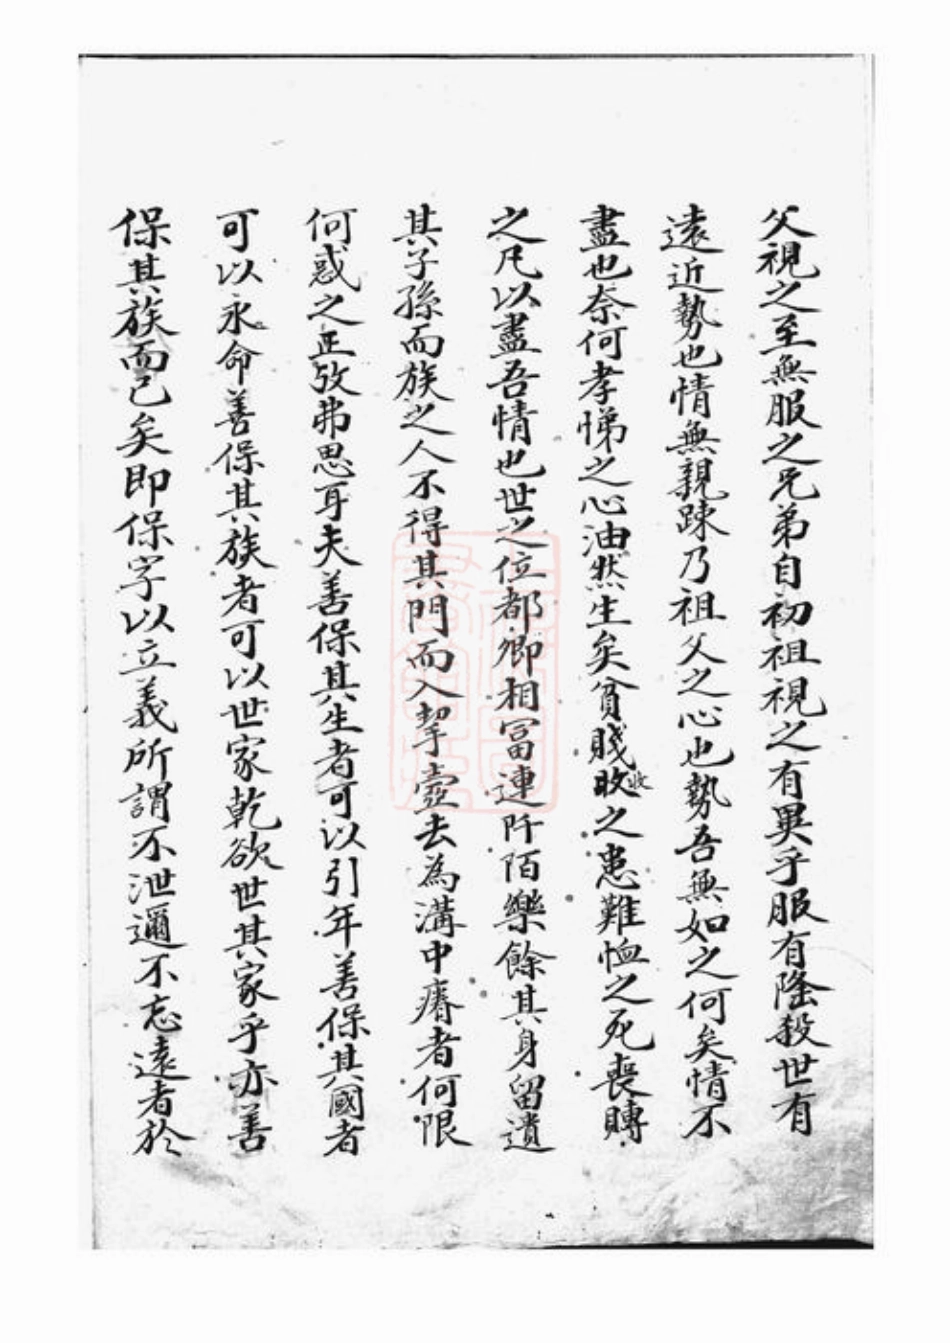 父視之至無服之兄弟自初祖視之有異乎服有隆殺世有
遠近勢也情無親踈乃祖父之心也勢吾無如之何矣情不
盡也奈何孝悌之心油然生矣貧賤收之患難恤之死喪賻
之凡以盡吾情也世之位都卿相冨連阡陌樂餘其身留遺
其子孫而族之人不得其門而入挈壺去為溝中瘠者何限
何惑之正攷弗思耳夫善保其生者可以引年善保其國者
可以永命善保其族者可以世家乾欲世其家乎亦善
保其族而已矣即保字以立義所謂不泄邇不忘遠者於